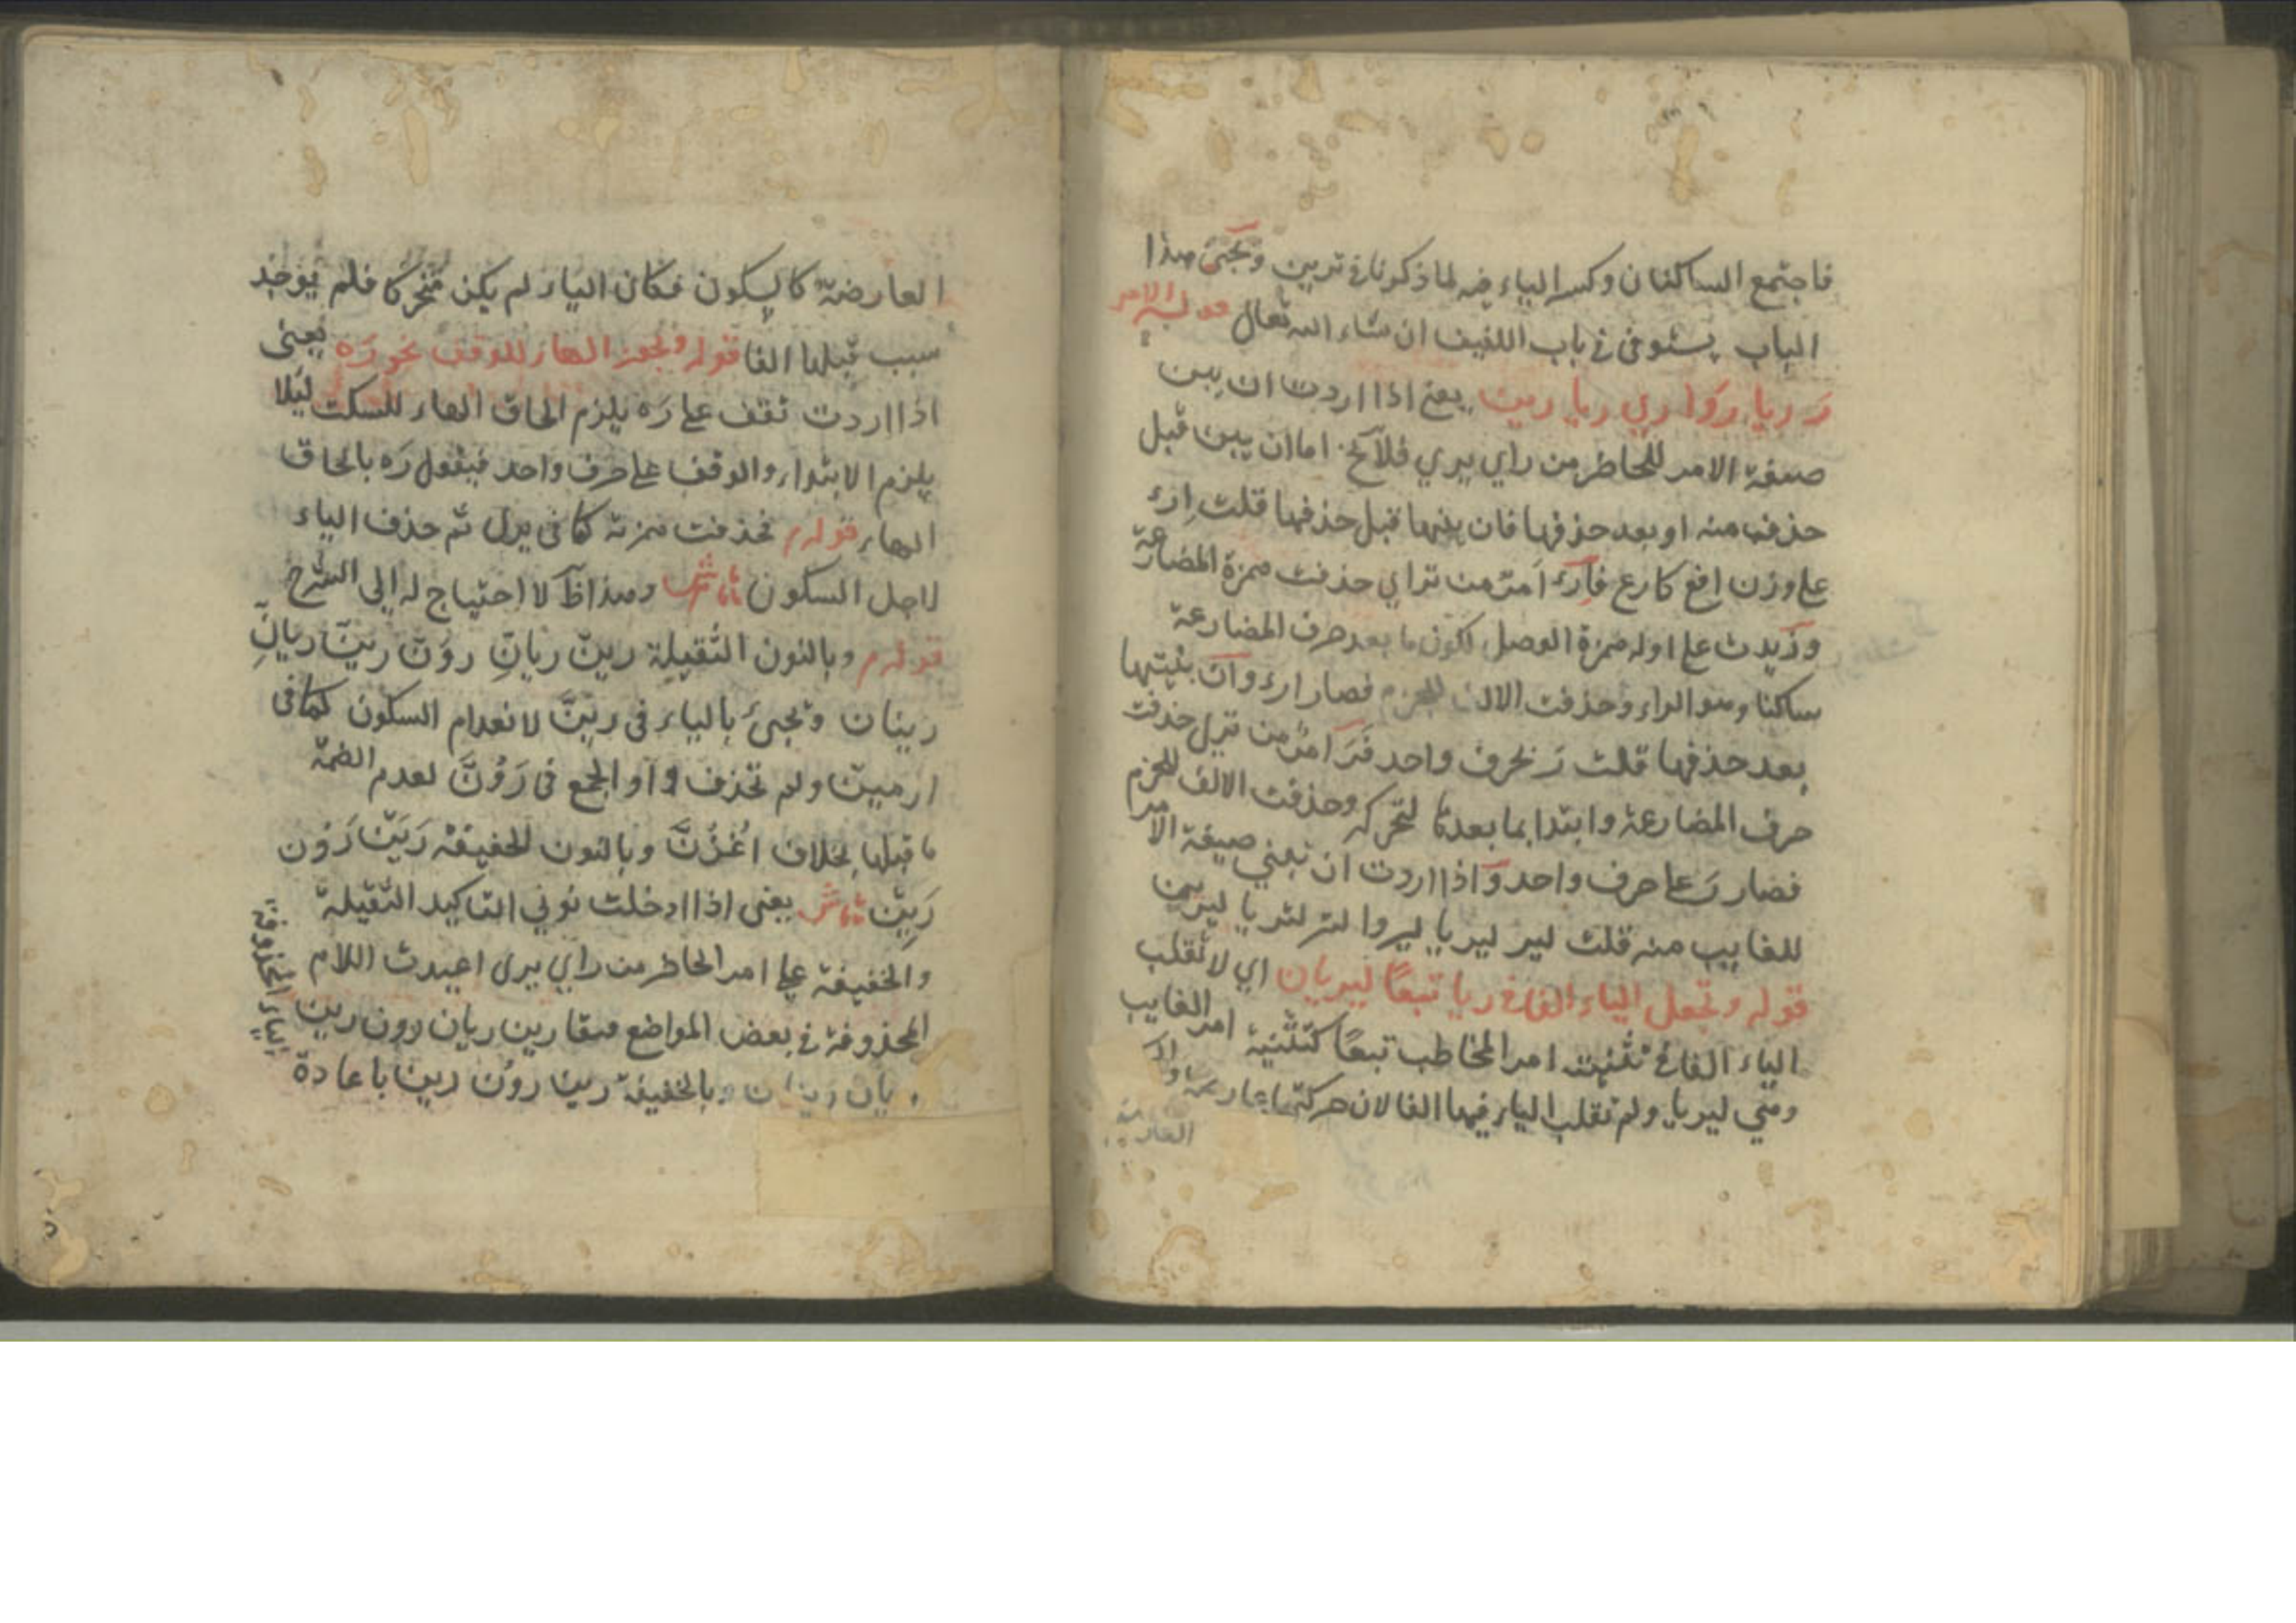 فاجتمع الساكنان وكسر الياء فيه لما ذكرنا في ترين ويجئ هذا
الباب يستوفى في باب اللفيف ان شاء الله تعالى قوله الامر
رَ ريا رَوا ري ريا رين يعني اذا اردت ان يبين
صيغة الامر للحاضر من راي يري فلا يخ اما ان يبين قبل
حذف منه او بعد حذفها فان بينها قبل حذفها قلت ارء
على وزن افع كارع فارء امر من تراي حذفت همزة المضارعة
وزيدت على اوله همزة الوصل لكون ما بعد حرف المضارعة
ساكنا وهو الراء وحذفت الالف للجزم فصار ارء وان بينتها
بعد حذفها قلت رَ بحرف واحد فرَ امر من تري حذفت
حرف المضارعة وابتدا بما بعدها لتحركه وحذفت الالف للجزم
فصار رَ على حرف واحد واذا اردت ان تبني صيغة الامر
للغايب منه قلت لير ليريا ليروا لتر لتريا ليرين
قوله وتجعل الياء الفا في ريا تبعًا ليريان اي لا تقلب
الياء الفا في تثنية امر المخاطب تبعًا كتثنية امر الغايب
وهي ليريا ولم تقلب الياء فيهما الفا لان حركتها عارضة
العارضة
العارضة كالسكون فكان الياء لم يكن متحركا فلم يوجد
سبب قبلها الفا قوله ويجوز الهاء للوقف نحو رَه يعنى
اذا اردت تقف على رَه يلزم الحاق الهاء للسكت ليلا
يلزم الابتداء والوقف على حرف واحد فيقول رَه بالحاق
الهاء قوله م فحذفت همزته كما في يرى ثم حذف الياء
لاجل السكون وهذا ظ لا احتياج له الى الشرح
قوله م وبالنون الثقيلة رينّ ريانِّ رونّ رينّ ريانِّ
رينان ويجئ بالياء فى رينَّ لانعدام السكون كما فى
ارمينّ ولم تحذف واو الجمع فى رَوُنَّ لعدم الضمة
ما قبلها بخلاف اغْزُنَّ وبالنون الخفيفة رَيَنْ رَوُن
رَيِنْ يعنى اذا ادخلت نوني التاكيد الثقيلة
والخفيفة على امر الحاضر من راي يرى اعيدت اللام
المحذوفة في بعض المواضع فيقا رين ريان رون رين
ريان رينان وبالخفيفة رين رون رين باعادة
الياء المحذوفة